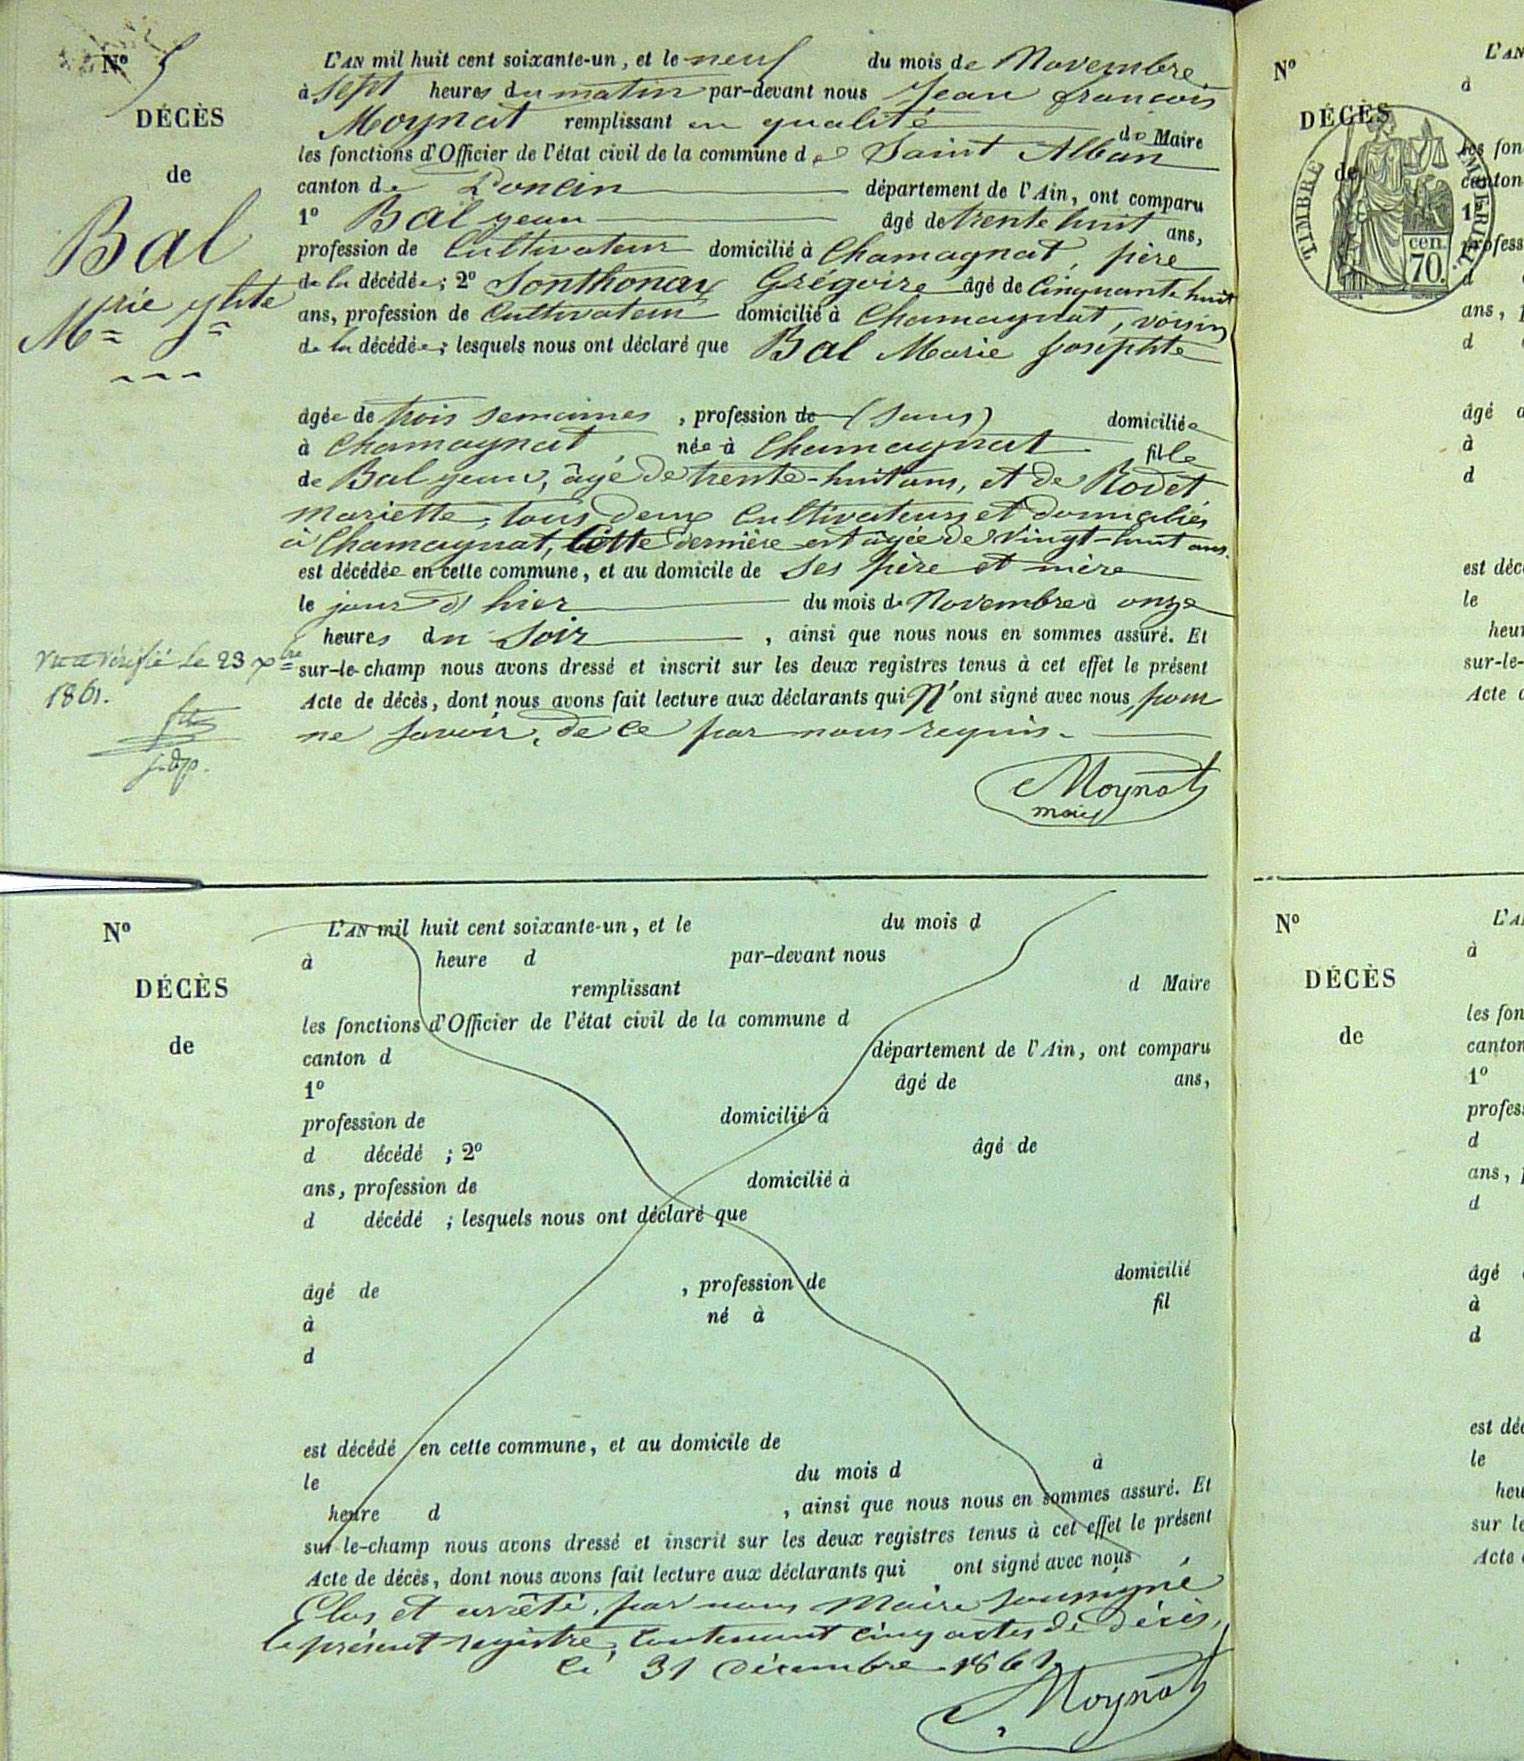 N° 5
DÉCÈS
de
Bal
Mrie Jphte
L'AN mil huit cent soixante-un, et le neuf du mois de Novembre
à sept heures du matin par-devant nous Jean françois
Moynat remplissant en qualité de Maire
les fonctions d'Officier de l'état civil de la commune de Saint Alban
canton de Poncin département de l'Ain, ont comparu
1° Bal jean âgé de trente huit ans,
profession de Cultivateur domicilié à Chamagnat, père
de la décédée; 2° Sonthonax Grégoire âgé de Cinquante huit
ans, profession de Cultivateur domicilié à Chamagnat, voisin
de la décédée; lesquels nous ont déclaré que Bal Marie Josephte
âgée de trois semaines, profession de (sans) domiciliée
à Chamagnat, née à Chamagnat fille
de Bal jean, âgé de trente-huit ans, et de Rodet
Mariette, tous deux Cultivateurs et domiciliés
à Chamagnat, Cette dernière est âgée de Vingt-huit ans.
est décédée en cette commune, et au domicile de ses père et mère
le jour d'hier du mois de Novembre à onze
heures du soir, ainsi que nous nous en sommes assuré. Et
sur-le-champ nous avons dressé et inscrit sur les deux registres tenus à cet effet le présent
Acte de décès, dont nous avons fait lecture aux déclarants qui N'ont signé avec nous, pour
ne savoir, de ce par nous requis.
Moynat
maire
Vu et vérifié le 23 xbre
1861.
N°
DÉCÈS
de
L'AN mil huit cent soixante-un, et le du mois d
à heure d par-devant nous
remplissant d Maire
les fonctions d'Officier de l'état civil de la commune d
canton d département de l'Ain, ont comparu
1° âgé de ans,
profession de domicilié à
d décédé ; 2° âgé de
ans, profession de domicilié à
d décédé ; lesquels nous ont déclaré que
âgé de , profession de domicilié
à né à fil
d
est décédé en cette commune, et au domicile de
le du mois d à
heure d , ainsi que nous nous en sommes assuré. Et
sur le-champ nous avons dressé et inscrit sur les deux registres tenus à cet effet le présent
Acte de décès, dont nous avons fait lecture aux déclarants qui ont signé avec nous
Clos et arrêté, par nous Maire soussigné
le présent registre, Contenant cinq actes de décès,
le 31 Décembre 1861
Moynat
N°
DÉCÈS
de
TIMBRE IMPERIAL
70 cen.
L'AN
à
les fon
canton
1°
profess
d
ans, p
d
âgé d
à
d
est déc
le
heur
sur-le-
Acte d
N°
DÉCÈS
de
L'AN
à
les fon
canton
1°
profess
d
ans, p
d
âgé
à
d
est déc
le
heu
sur le
Acte